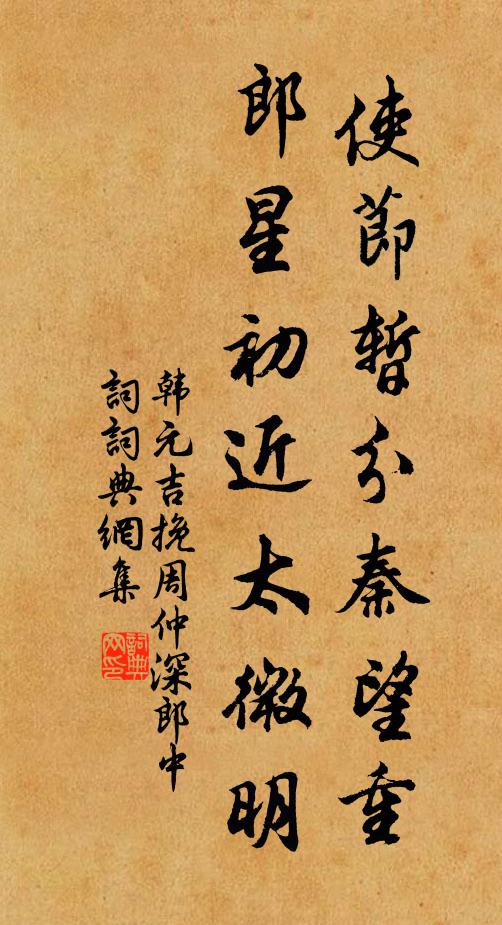 使節暫分秦望重
郎星初近太微明
韩元吉挽周仲深郎中
詞詞典網集
詞典网印